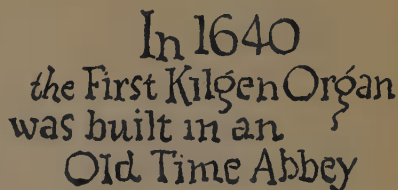 In 1640
the First Kilgen Organ
was built in an
Old Time Abbey